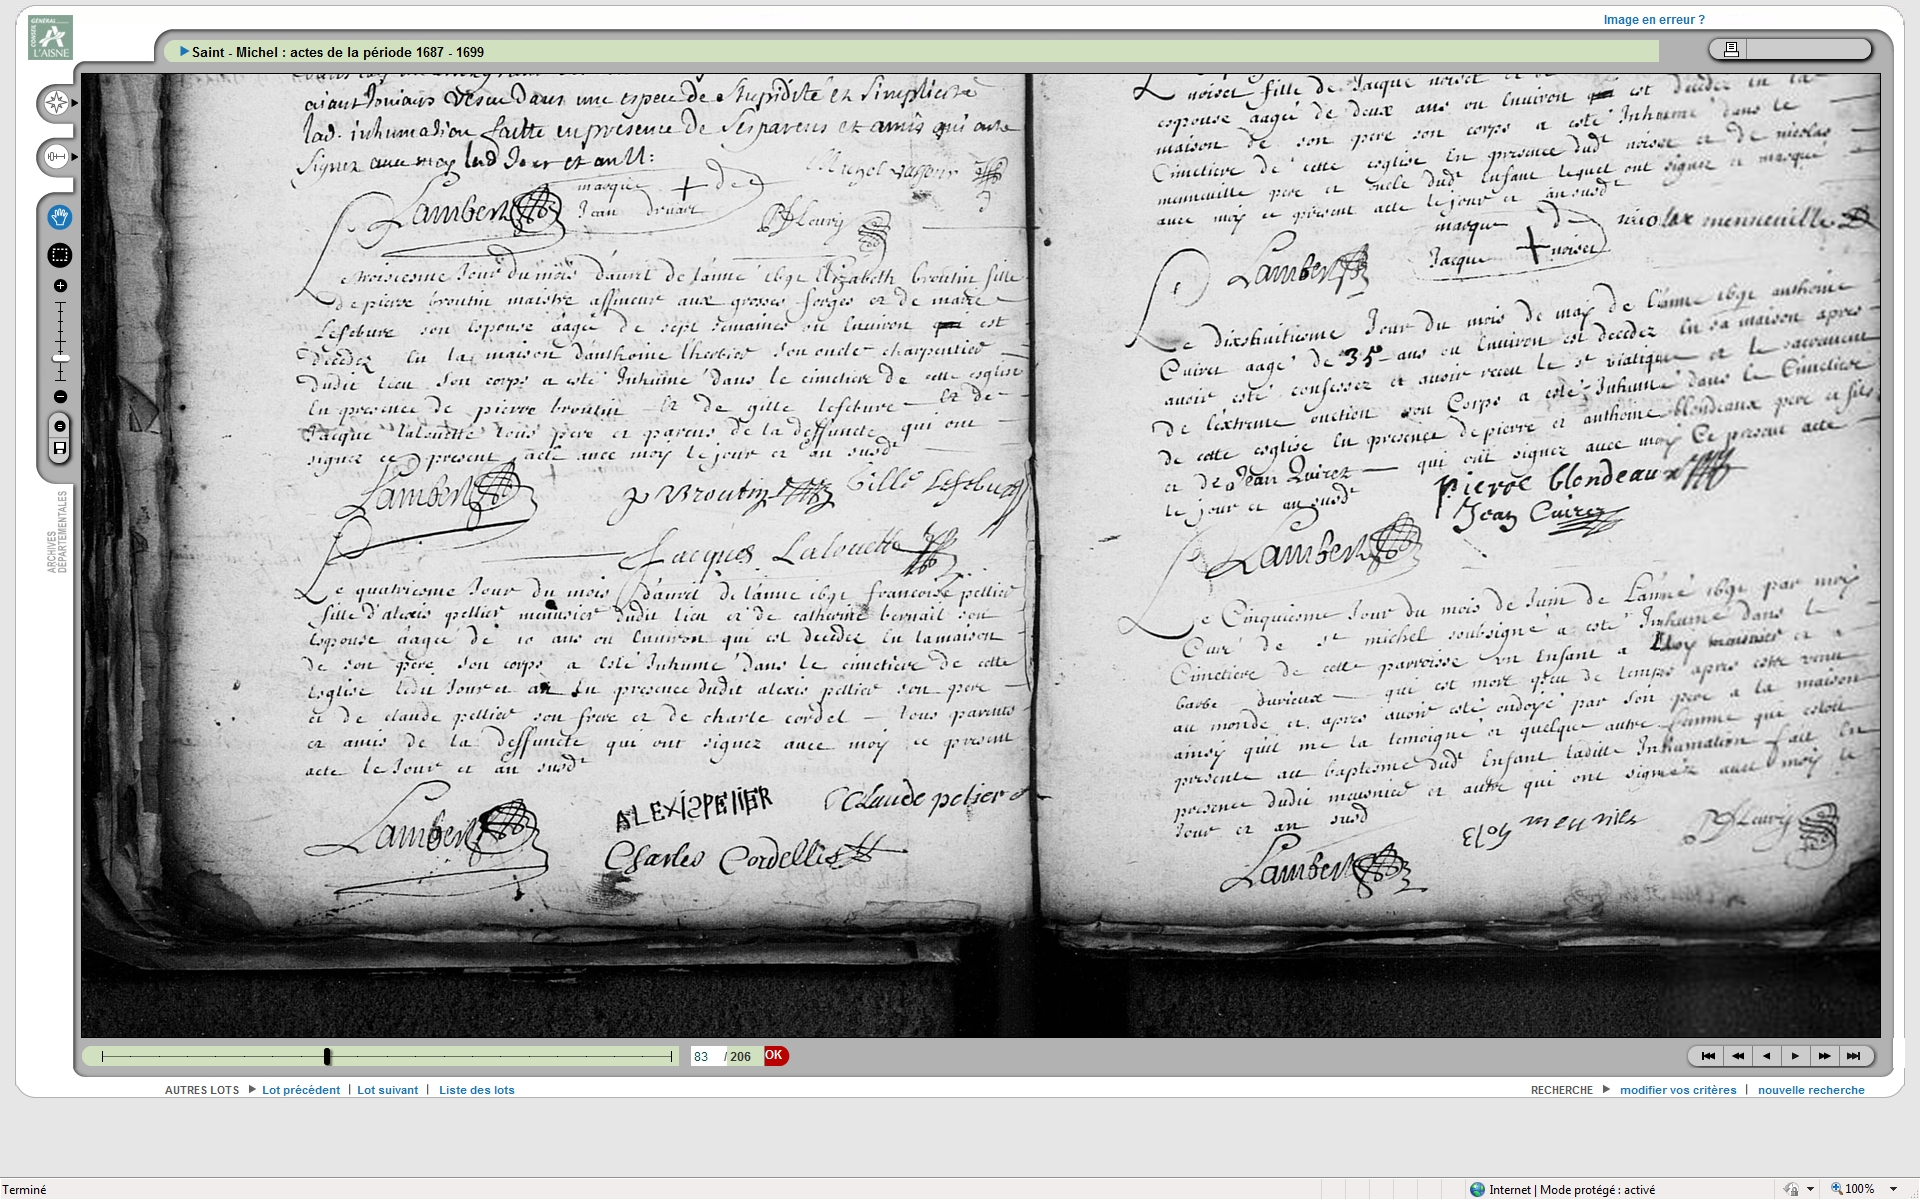 Image en erreur ?
CONSEIL GÉNÉRAL
L'AISNE
Saint - Michel : actes de la période 1687 - 1699
aiant tousiours vescu dans une espece de stupidité et simplicité
lad. inhumation faitte en presence de ses parens et amis qui ont
signez avec moy led Jour et an
Lambert
marque de
Jean druart
Le troisiesme Jour du mois d'avril de l'anne 1691 Elizabeth broutin fille
de pierre broutin maistre affineur aux grosses forges et de marie
Lefebure son espouse aagé de sept semaines ou Environ est
decedez en la maison d'anthoine lherbier son oncle charpentier
dudit lieu son corps a esté Inhumé dans le cimetiere de cette esglise
En presence de pierre broutin et de gille lefebure et de
Jacque lalouette tous pere et parens de la deffuncte qui ont
signez ce present acte avec moy le jour et an susd
Lambert
p Broutin
Gille Lefebure
Jacques Lalouette
Le quatriesme Jour du mois d'avril de l'anne 1691 francoise pellier
fille d'alexis pellier meusnier dudit lieu et de catherine bernail son
Espouse aagée de 10 ans ou Environ qui est decedez En la maison
de son pere son corps a esté Inhumé dans le cimetiere de cette
Esglise ledit Jour et an En presence dudit alexis pellier son pere
et de claude pellier son frere et de charle cordel tous parents
et amis de la deffuncte qui ont signez avec moy ce present
acte le Jour et an susd
Lambert
ALEXIS PELIIER
Claude pelier
Charles Cordellie
noiset fille de Jacque noiset
espouse aagé de deux ans ou Environ est decedez en la
maison de son pere son corps a esté Inhumé dans le
Cimetiere de cette esglise En presence dud noiset et de nicolas
menneuille pere et oncle dud Enfant lequel ont signez et marqué
avec moy ce present acte le jour et an susd
Lambert
marque de
Jacque noiset
nicolas menneuille
Le dixshuitiesme Jour du mois de may de l'anne 1691 anthoine
Cuiret aagé de 35 ans ou Environ est decedez En sa maison apres
avoir esté confessez et avoir receu le st viatique et le sacrement
de l'extreme onction son Corps a esté Inhumé dans le Cimetiere
de cette esglise En presence de pierre et anthoine blondeaux pere et fils
et de Jean Quiret qui ont signez avec moy Ce present acte
le jour et an susd
pierre blondeaux
Jean Cuirez
Lambert
Le Cinquiesme Jour du mois de Juin de L'anné 1691 par moy
Curé de st michel soubsigné a esté Inhumé dans le
Cimetiere de cette parroisse un Enfant a Eloy meusnier et a
barbe durieux qui est mort peu de temps apres estre venu
au monde et apres avoir esté ondoyé par son pere a la maison
ainsy quil me la temoigné et quelque autre femme qui estoit
presente au baptesme dud Enfant ladite Inhumation fait En
presence dudit meusnier et autre qui ont signez avec moy le
Jour et an susd
Eloy meunier
Lambert
ARCHIVES
DÉPARTEMENTALES
83 / 206 OK
AUTRES LOTS Lot précédent | Lot suivant | Liste des lots
RECHERCHE modifier vos critères | nouvelle recherche
Terminé
Internet | Mode protégé : activé
100%